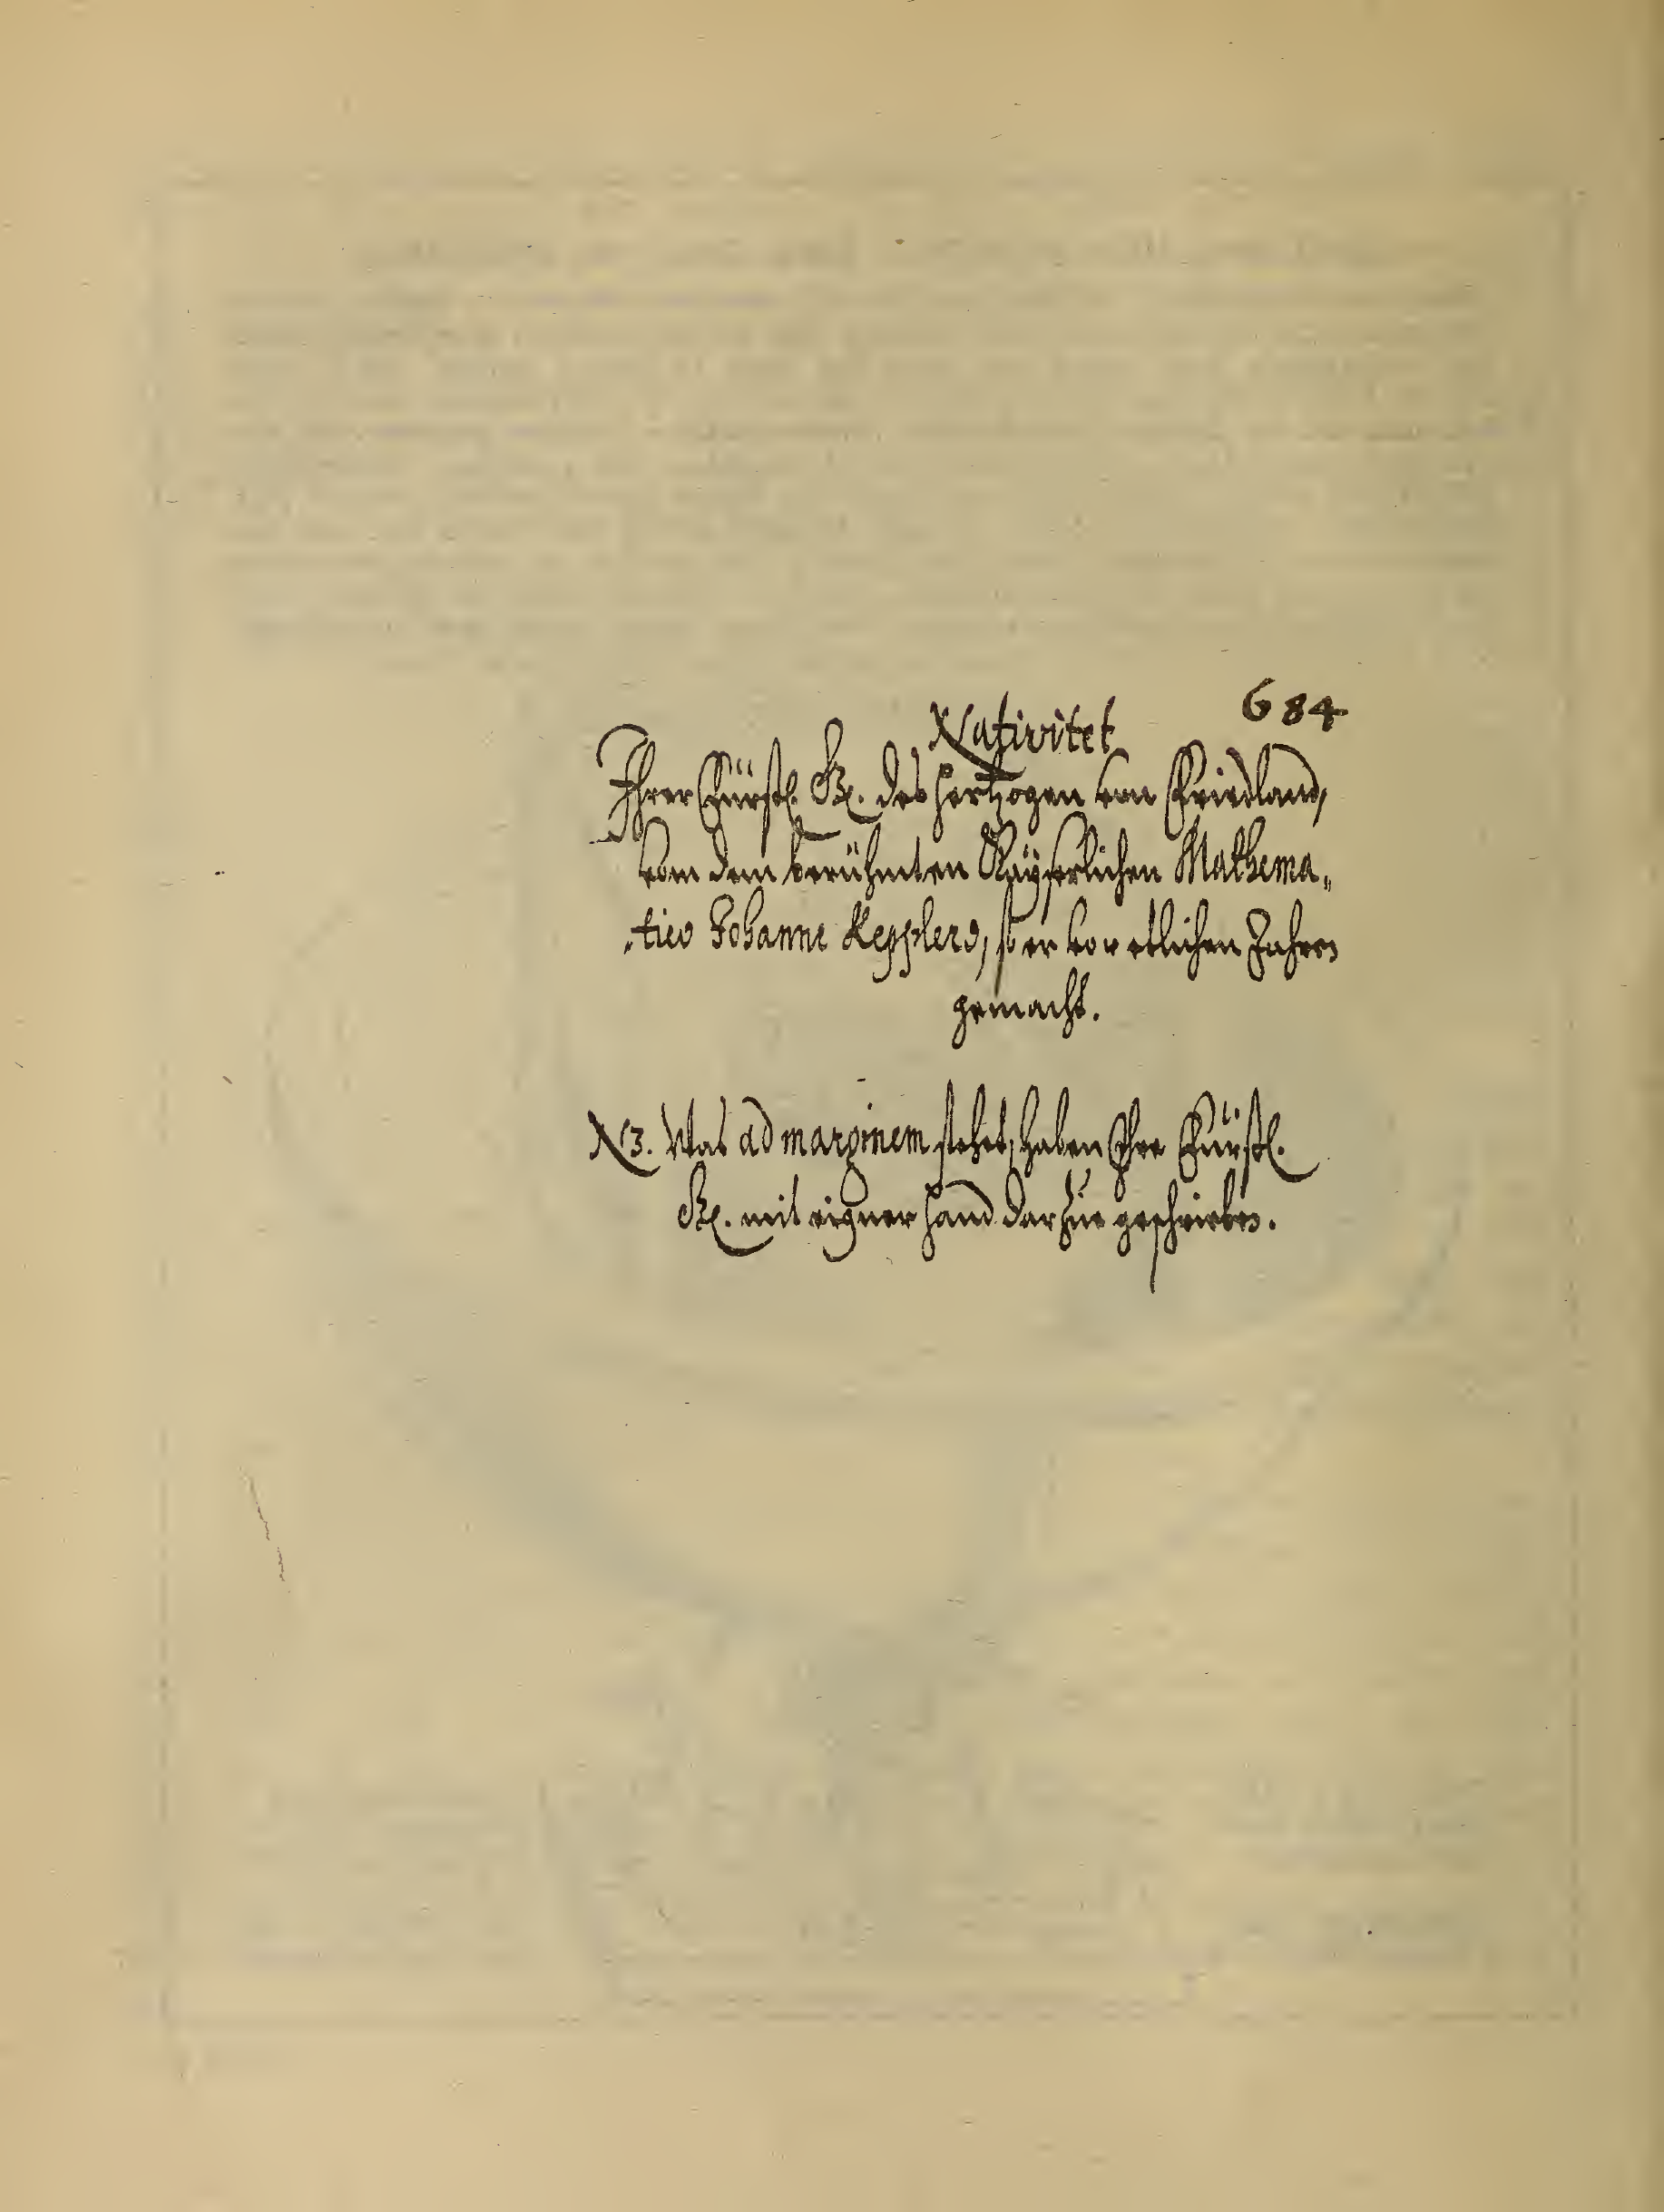 684
Nativitet
Ihrer Fürstl. Gn. des Hertzogen von Friedland,
von dem berühmten Kaÿserlichen Mathema„
„tico Johanne Kepplero, so er vor etlichen Jahren
gemacht.
NB. Was ad marginem stehet, haben Ihre Fürstl.
Gn. mit eigner Hand darzue geschrieben.